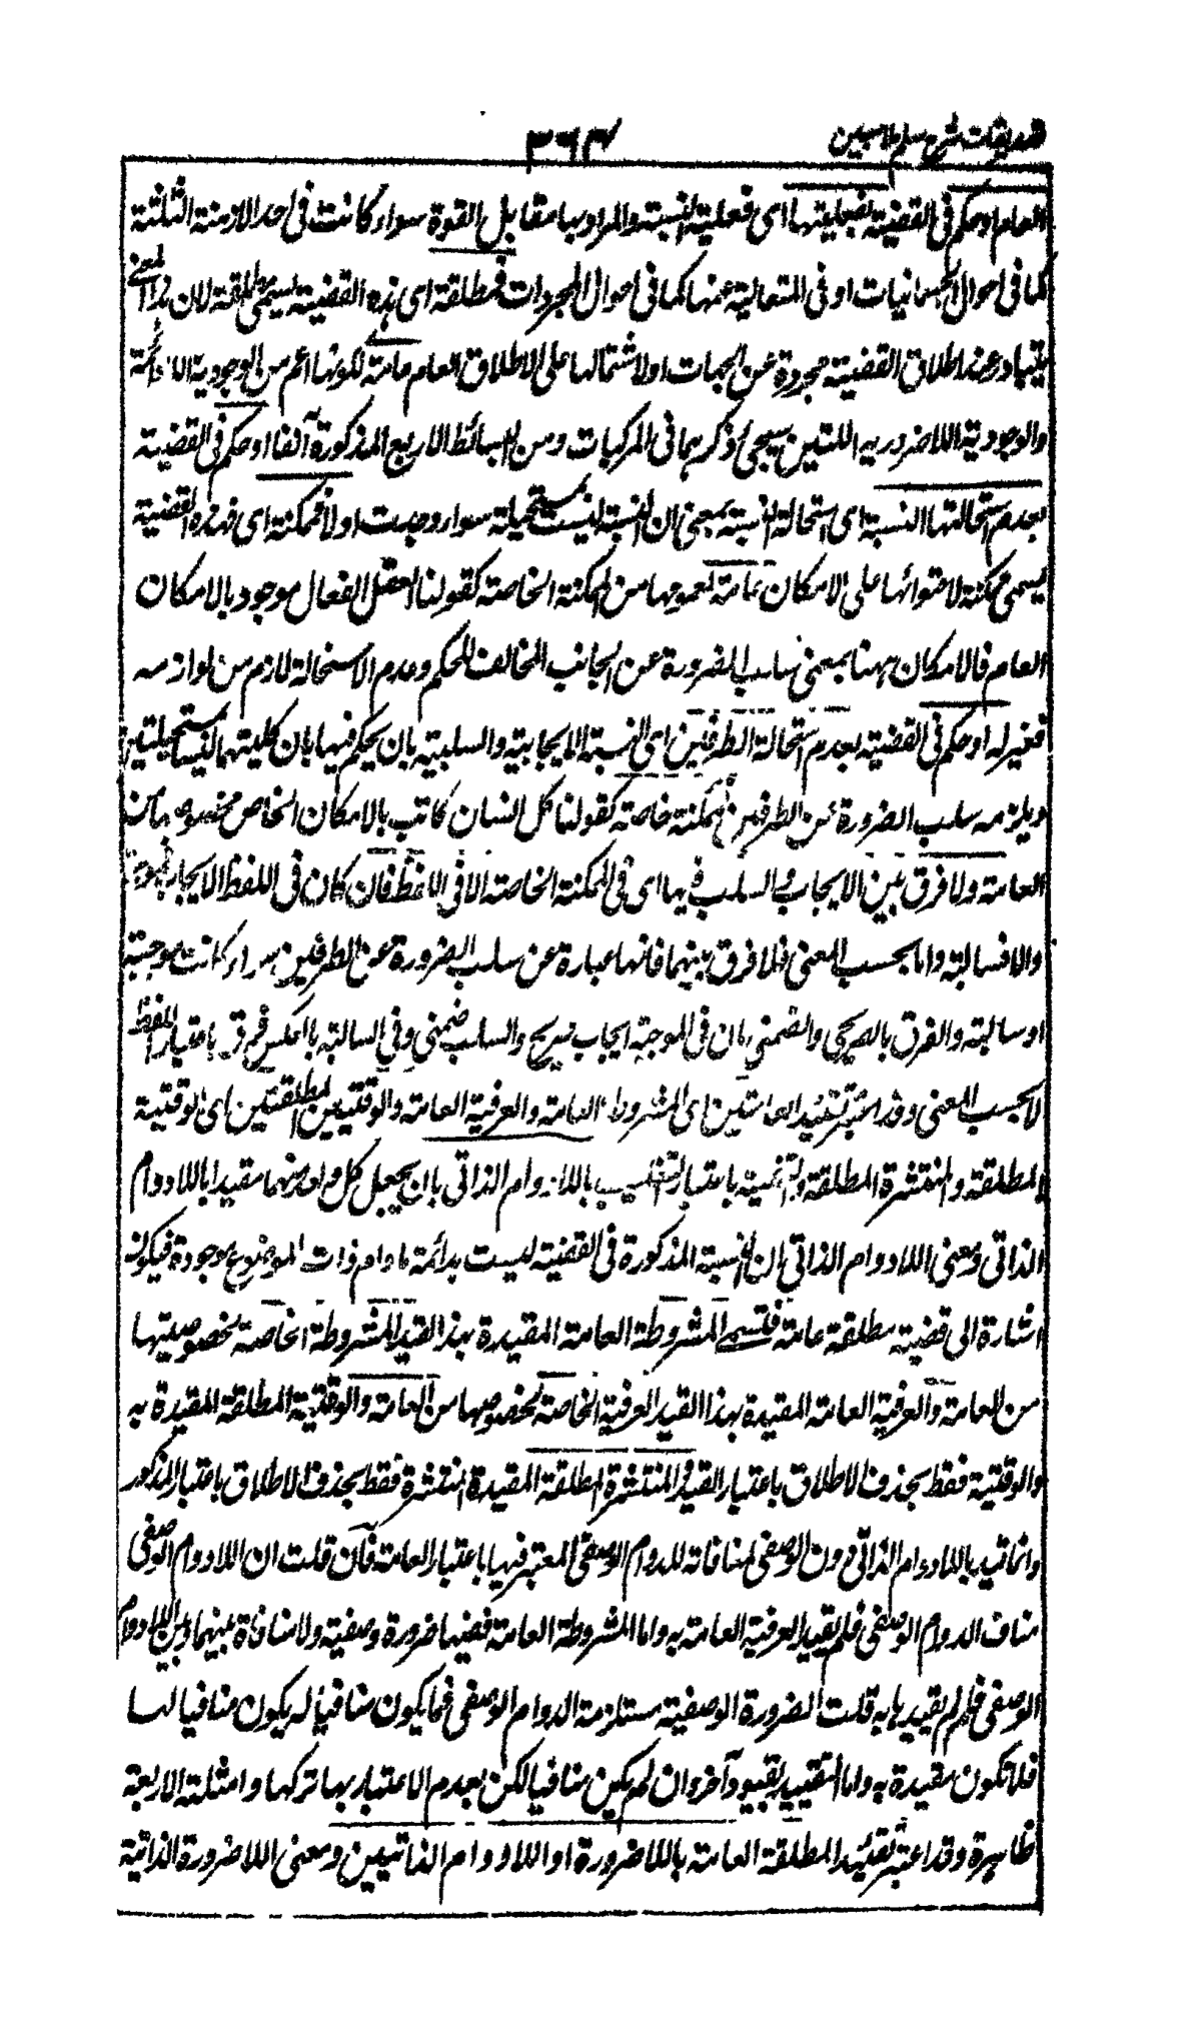 تصدیقات شرح سلم ملا مبین
٣٦٣
العام او حکم فی القضیة بفعلیتها ای فعلیة النسبة والمراد بها مقابل القوة سواء کانت فی احد الازمنة الثلثة
کما فی احوال الجسمانیات او فی المتعالیة عنها کما فی احوال المجردات فمطلقة ای هذه القضیة یسمی مطلقة لان هذا المعنی
یتبادر عند اطلاق القضیة مجردة عن الجهات او لاشتمالها علی الاطلاق العام عامة لکونها اعم من الوجودیة اللادائمة
والوجودیة اللاضروریه اللتین سیجئ ذکرهما فی المرکبات ومن البسائط الاربع المذکورة آنفا او حکم فی القضیة
بعدم استحالتها النسبة ای استحالة النسبة بمعنی ان النسبة لیست مستحیلة سواء وجدت اولا فممکنة ای فهذه القضیة
یسمی ممکنة لاحتوائها علی الامکان عامة لعمومها من الممکنة الخاصة کقولنا العقل الفعال موجود بالامکان
العام فالامکان ههنا بمعنی سلب الضرورة عن الجانب المخالف للحکم وعدم الاستحالة لازم من لوازمه
فغیر له او حکم فی القضیة بعدم استحالة الطرفین ای النسبة الایجابیة والسلبیة بان یحکم فیها بان کلیتهما لیستا مستحیلتین
ویلزمه سلب الضرورة عن الطرفین فممکنة خاصة کقولنا کل انسان کاتب بالامکان الخاص مخصوصها من
العامة ولا فرق بین الایجاب والسلب فیها ای فی الممکنة الخاصة الا فی اللفظ فان کان فی اللفظ الایجاب فموجبة
والا فسالبة واما بحسب المعنی فلا فرق بینهما فانها عبارة عن سلب الضرورة عن الطرفین سواء کانت موجبة
او سالبة والفرق بالصریحی والضمنی بان فی الموجبة ایجاب صریح والسلب ضمنی وفی السالبة بالعکس فرق باعتبار اللفظ
لا بحسب المعنی وقد اعتبر تقیید العامتین ای المشروطة العامة والعرفیة العامة والوقتیتین المطلقتین ای الوقتیة
المطلقة والمنتشرة المطلقة والتسمیة باعتبار التغلیب باللادوام الذاتی بان یجعل کل واحد منهما مقیدا باللادوام
الذاتی ومعنی اللادوام الذاتی ان النسبة المذکورة فی القضیة لیست بدائمة مادام ذات الموضوع موجودة فیکون
اشارة الی قضیة مطلقة عامة فتسمی المشروطة العامة المقیدة بهذا القید المشروطة الخاصة بخصوصیتها
من العامة والعرفیة العامة المقیدة بهذا القید العرفیة الخاصة لخصوصها من العامة والوقتیة المطلقة المقیدة به
والوقتیة فقط بحذف الاطلاق باعتبار القید والمنتشرة المطلقة المقیدة المنتشرة فقط بحذف الاطلاق باعتبار المذکور
وانما قید باللادوام الذاتی دون الوصفی لمنافاته للدوام الوصفی المعتبر فیها باعتبار العامة فان قلت ان اللادوام الوصفی
مناف الدوام الوصفی فلم یقید العرفیة العامة به واما المشروطة العامة ففیها ضرورة وصفیة ولا منافاة بینهما وبین اللادوام
الوصفی فلم لم یقید ها به قلت الضرورة الوصفیة مستلزمة الدوام الوصفی فما یکون منافیا له یکون منافیا لها
فلا تکون مقیدة به واما التقیید بقیود آخر وان لم یکن منافیا لکن بعدم الاعتبار بها ترکها وامثلة الاربعة
ظاهرة وقد اعتبر تقیید المطلقة العامة باللاضرورة او اللادوام الذاتیین ومعنی اللاضرورة الذاتیة